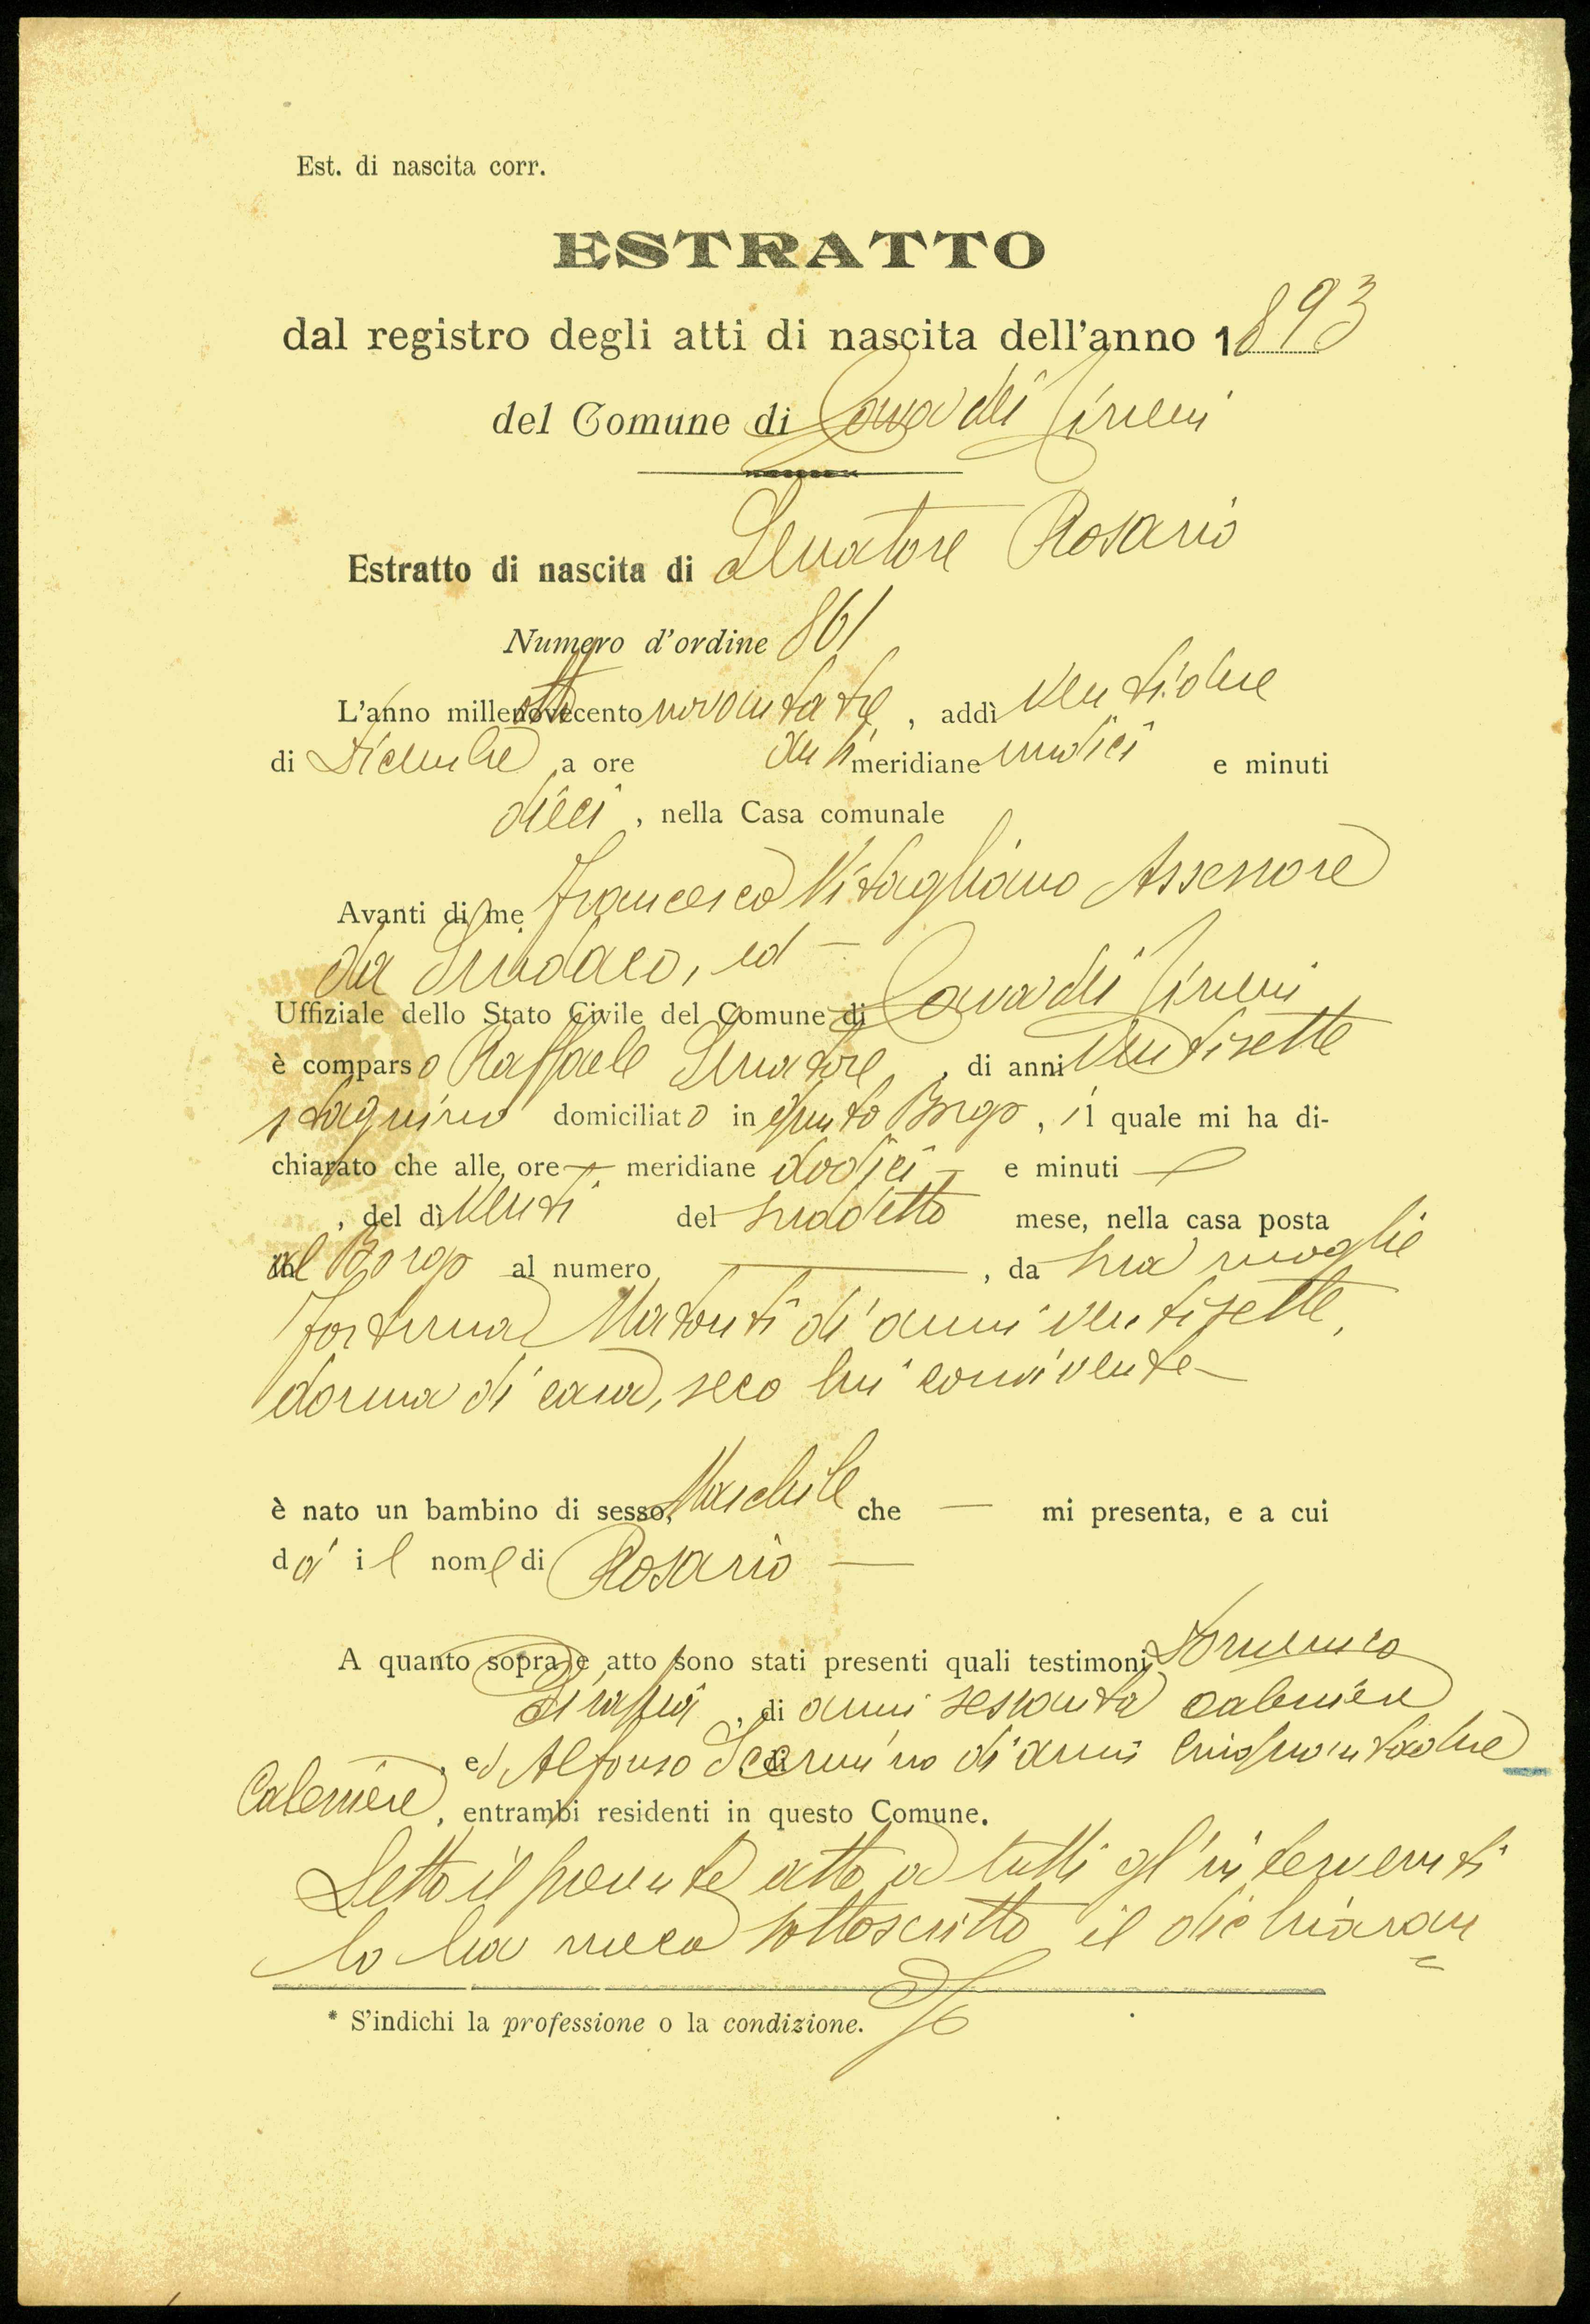 Est. di nascita corr.
ESTRATTO
dal registro degli atti di nascita dell'anno 1893
del Comune di Cava dei Tirreni
Estratto di nascita di Senatore Rosario
Numero d'ordine 861
L'anno milleottocento novantatre, addì Ventidue
di Dicembre, a ore anti meridiane undici e minuti
dieci, nella Casa comunale
Avanti di me Francesco Vitagliano Assessore
da Sindaco, ed —
Uffiziale dello Stato Civile del Comune di Cava dei Tirreni
è comparso Raffaele Senatore, di anni Ventisette
stagnino domiciliato in questo Borgo, il quale mi ha di-
chiarato che alle ore — meridiane dodici — e minuti —
, del dì Venti del suddetto mese, nella casa posta
al Borgo al numero —, da sua moglie
Fortuna Matonti di anni ventisette,
donna di casa, seco lui convivente —
è nato un bambino di sesso Maschile che — mi presenta, e a cui
dà il nome di Rosario —
A quanto sopra e atto sono stati presenti quali testimoni Domenico
, di anni sessanta calessiere
, ed Alfonso di anni cinquantadue
Calessiere, entrambi residenti in questo Comune.
Letto il presente atto a tutti gl'intervenuti
lo ha meco sottoscritto il dichiaran
* S'indichi la professione o la condizione.